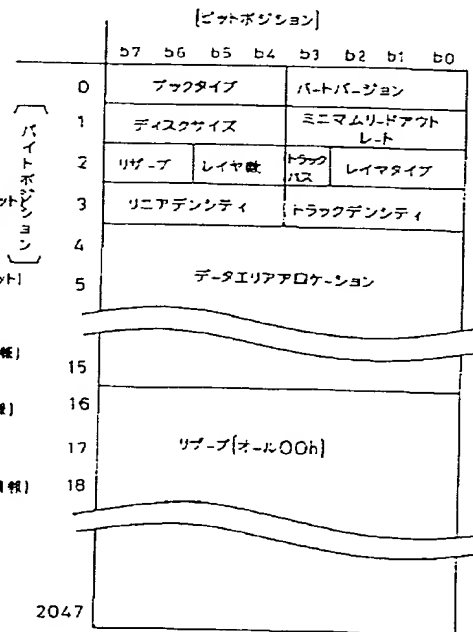 [ビットポジション]
b7 b6 b5 b4 b3 b2 b1 b0
[バイトポジション]
0 ブックタイプ パートバージョン
1 ディスクサイズ ミニマムリードアウト
レート
2 リザーブ レイヤ数 トラック
パス レイヤタイプ
3 リニアデンシティ トラックデンシティ
4
5 データエリアアロケーション
15
16
17 リザーブ[オール00h]
18
2047
ット)
ット)
報)
報)